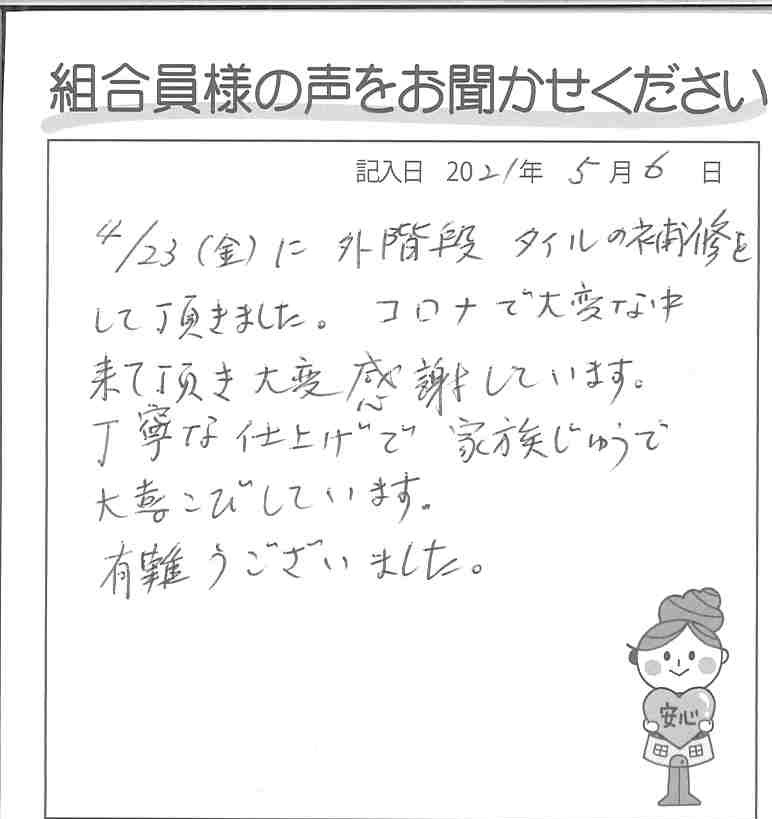 組合員様の声をお聞かせください
記入日 2021年 5月6日
4/23(金)に 外階段 タイルの補修を
して頂きました。 コロナで大変な中
来て頂き大変感謝しています。
丁寧な仕上げで 家族じゅうで
大喜こびしています。
有難うございました。
安心